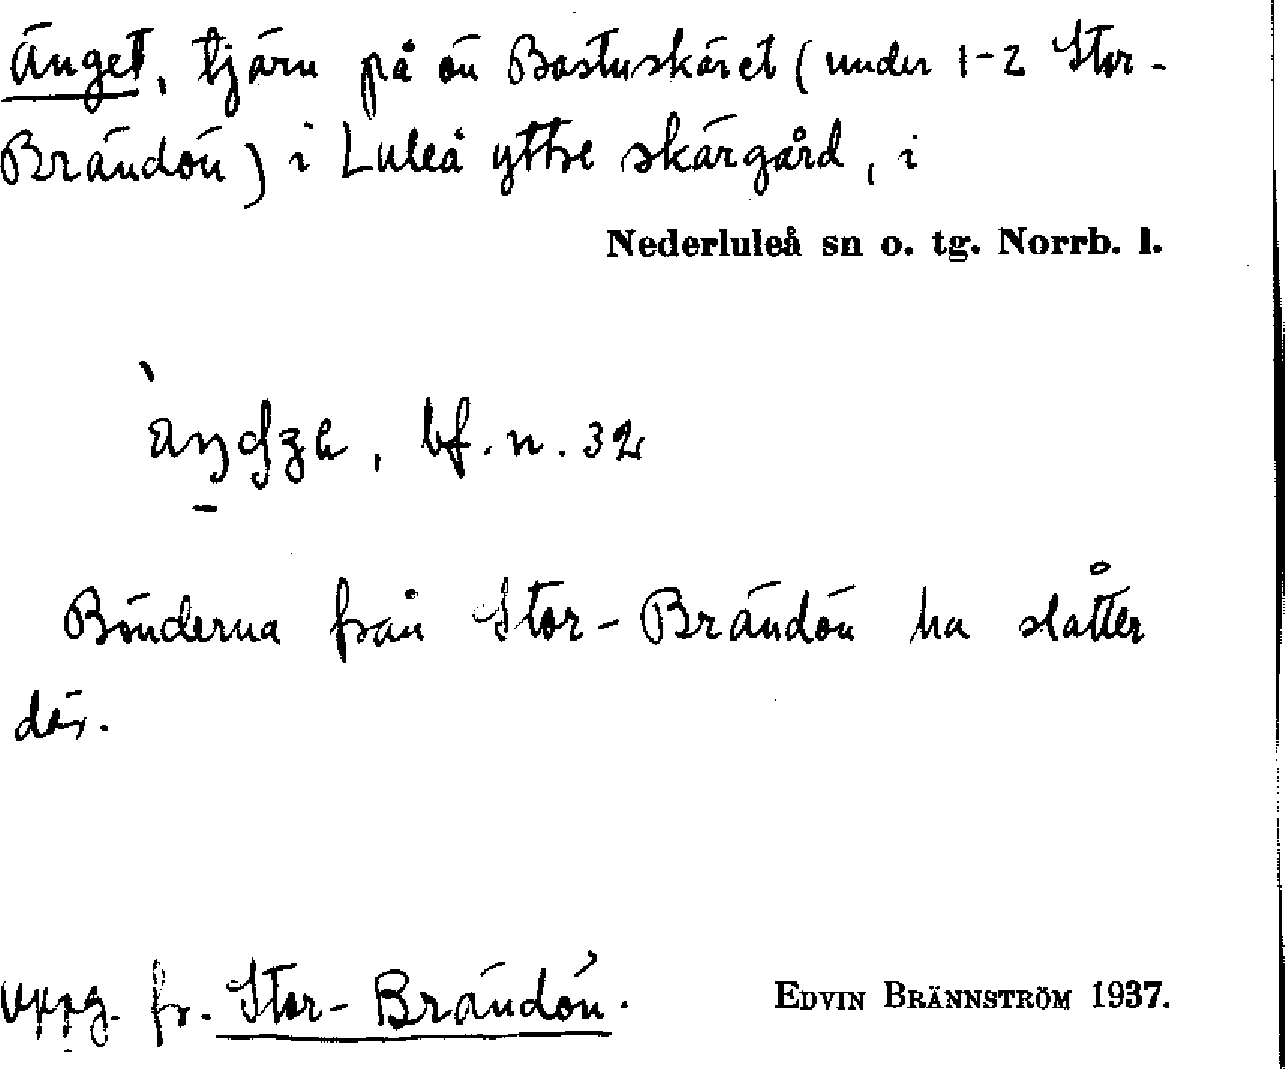 Änget, tjärn på ön Bastuskäret (under 1-2 Stor-
Brändön) i Luleå yttre skärgård, i
Nederluleå sn o. tg. Norrb. l.
bf. n. 32
Bönderna från Stor-Brändön ha slåtter
där.
Uppg. fr. Stor-Brändön.
EDVIN BRÄNNSTRÖM 1937.